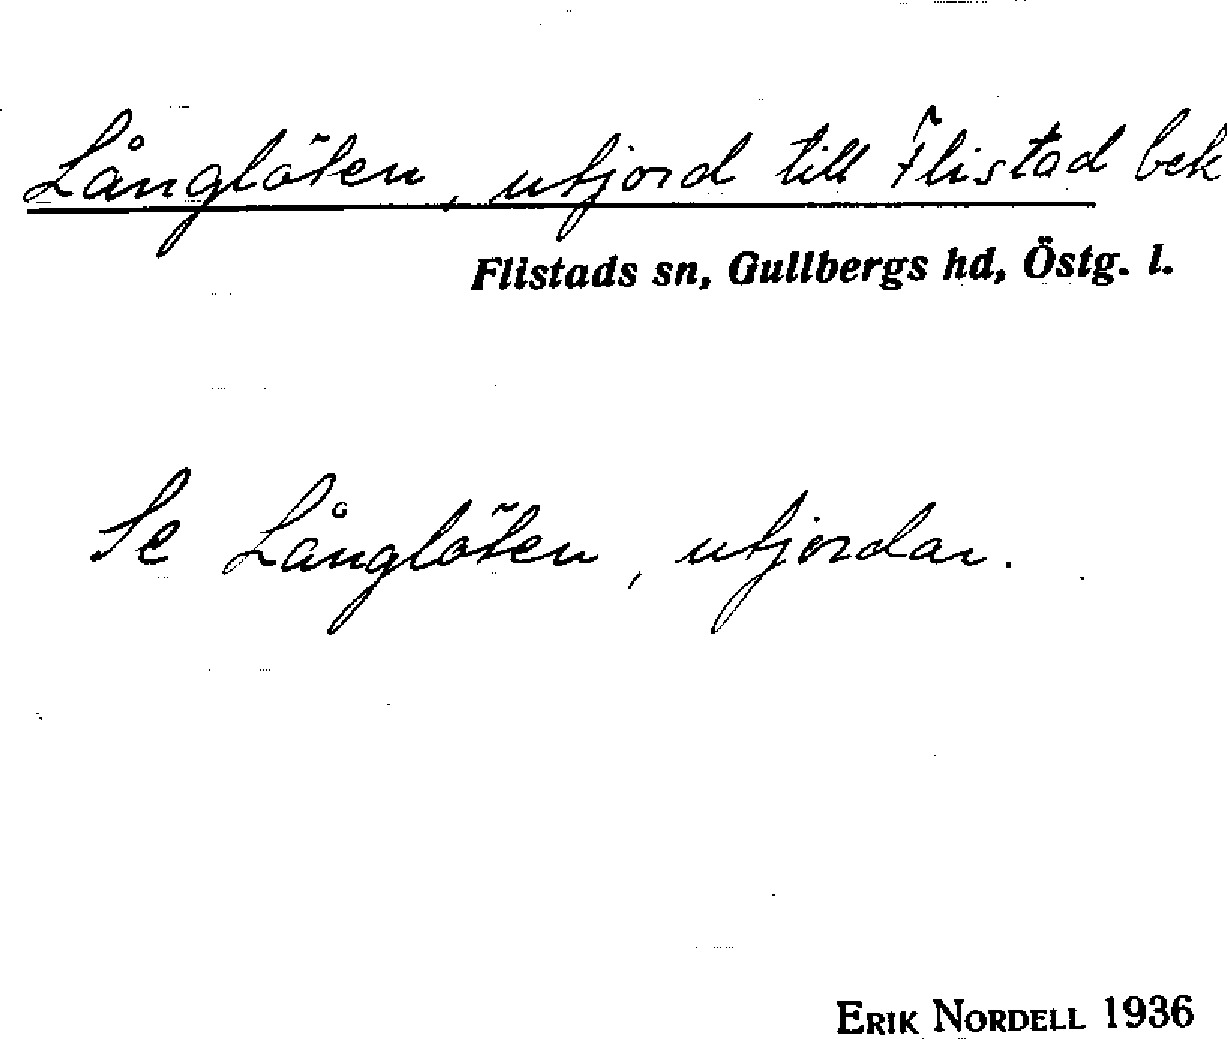 Långlöten, utjord till Flistad bek
Flistads sn, Gullbergs hd, Östg. l.
Se Långlöten, utjordar.
ERIK NORDELL 1936